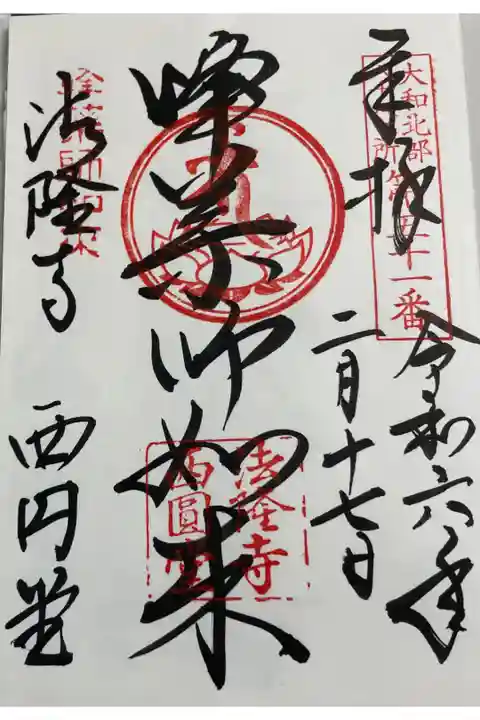 奉拝
大和北部
第五十一番
令和六年
二月十七日
峰薬師如来
法隆寺
西圓堂
法隆寺
西円堂